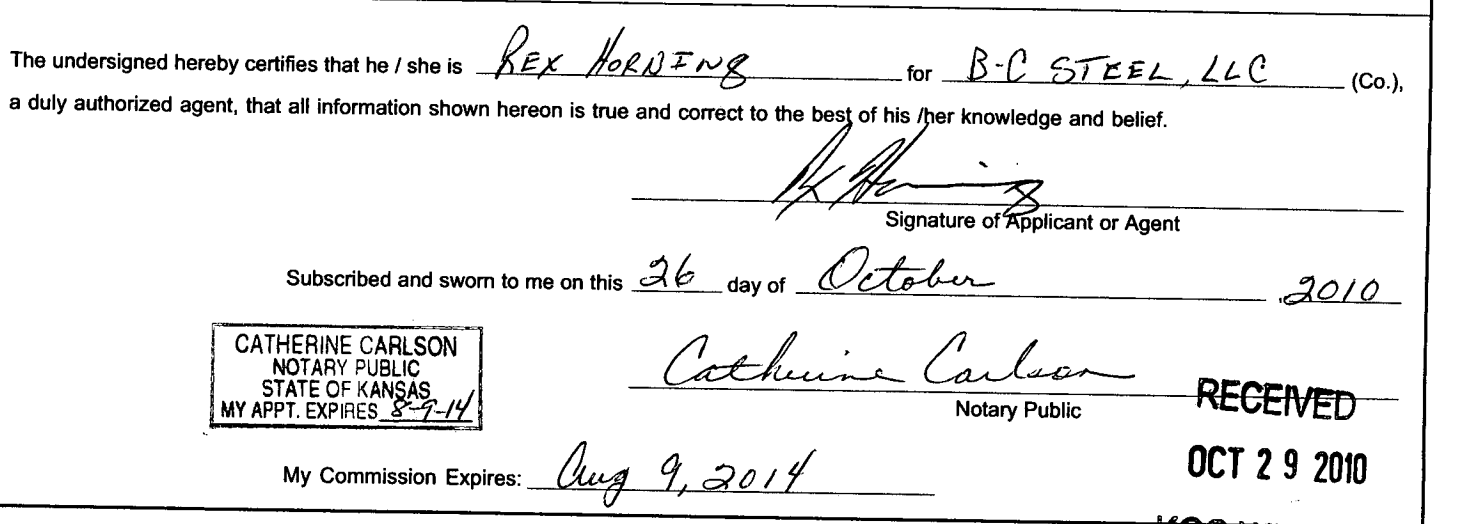 The undersigned hereby certifies that he / she is REX HORNING for B-C STEEL, LLC (Co.),
a duly authorized agent, that all information shown hereon is true and correct to the best of his /her knowledge and belief.
Rex Horning
Signature of Applicant or Agent
Subscribed and sworn to me on this 26 day of October , 2010
CATHERINE CARLSON
NOTARY PUBLIC
STATE OF KANSAS
MY APPT. EXPIRES 8-9-14
Catherine Carlson
Notary Public
RECEIVED
OCT 29 2010
My Commission Expires: Aug 9, 2014